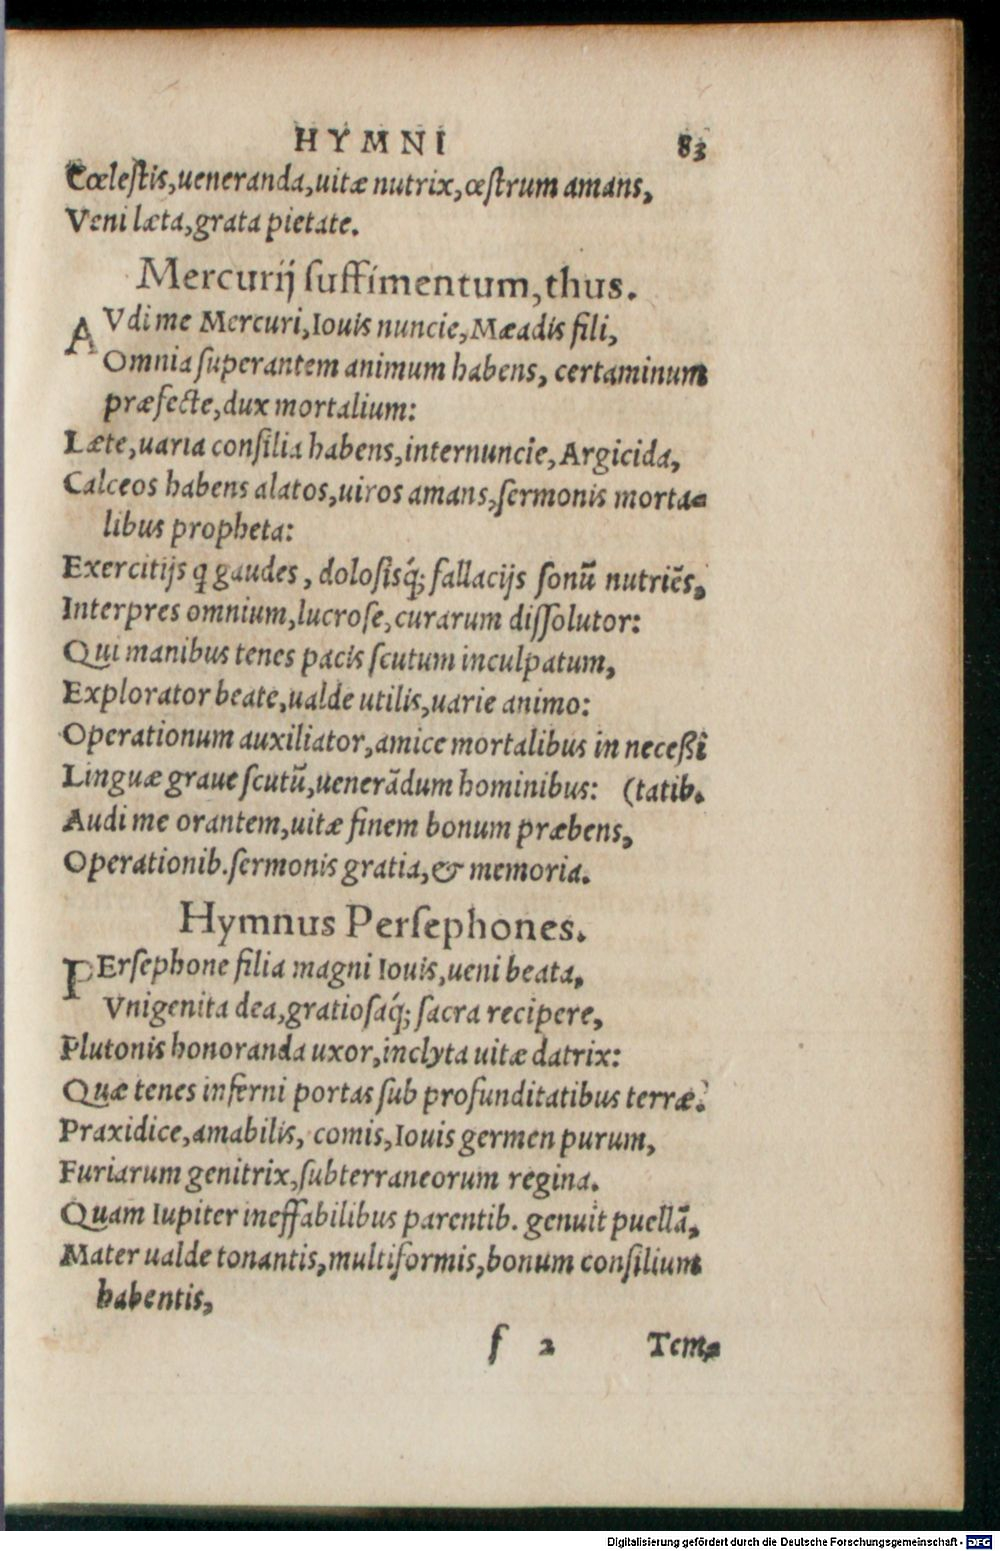 HYMNI 83
Cœleſtis,ueneranda,uitæ nutrix,œſtrum amans,
Veni læta,grata pietate.
Mercurij ſuffimentum,thus.
AVdi me Mercuri,Iouis nuncie,Mæadis fili,
Omnia ſuperantem animum habens, certaminum
præfecte,dux mortalium:
Læte,uaria conſilia habens,internuncie, Argicida,
Calceos habens alatos,uiros amans,ſermonis morta-
libus propheta:
Exercitijs q gaudes, doloſisq́; fallacijs ſonũ nutriẽs,
Interpres omnium,lucroſe,curarum diſſolutor:
Qui manibus tenes pacis ſcutum inculpatum,
Explorator beate,ualde utilis,uarie animo:
Operationum auxiliator,amice mortalibus in neceßi
Linguæ graue ſcutũ,uenerãdum hominibus: (tatib.
Audi me orantem,uitæ finem bonum præbens,
Operationib.ſermonis gratia,& memoria.
Hymnus Perſephones.
PErſephone filia magni Iouis,ueni beata,
Vnigenita dea,gratioſaq́; ſacra recipere,
Plutonis honoranda uxor,inclyta uitæ datrix:
Quæ tenes inferni portas ſub profunditatibus terræ:
Praxidice,amabilis, comis,Iouis germen purum,
Furiarum genitrix,ſubterraneorum regina.
Quam Iupiter ineffabilibus parentib. genuit puellã,
Mater ualde tonantis,multiformis,bonum conſilium
habentis,
f 2 Tem-
Digitalisierung gefördert durch die Deutsche Forschungsgemeinschaft - DFG